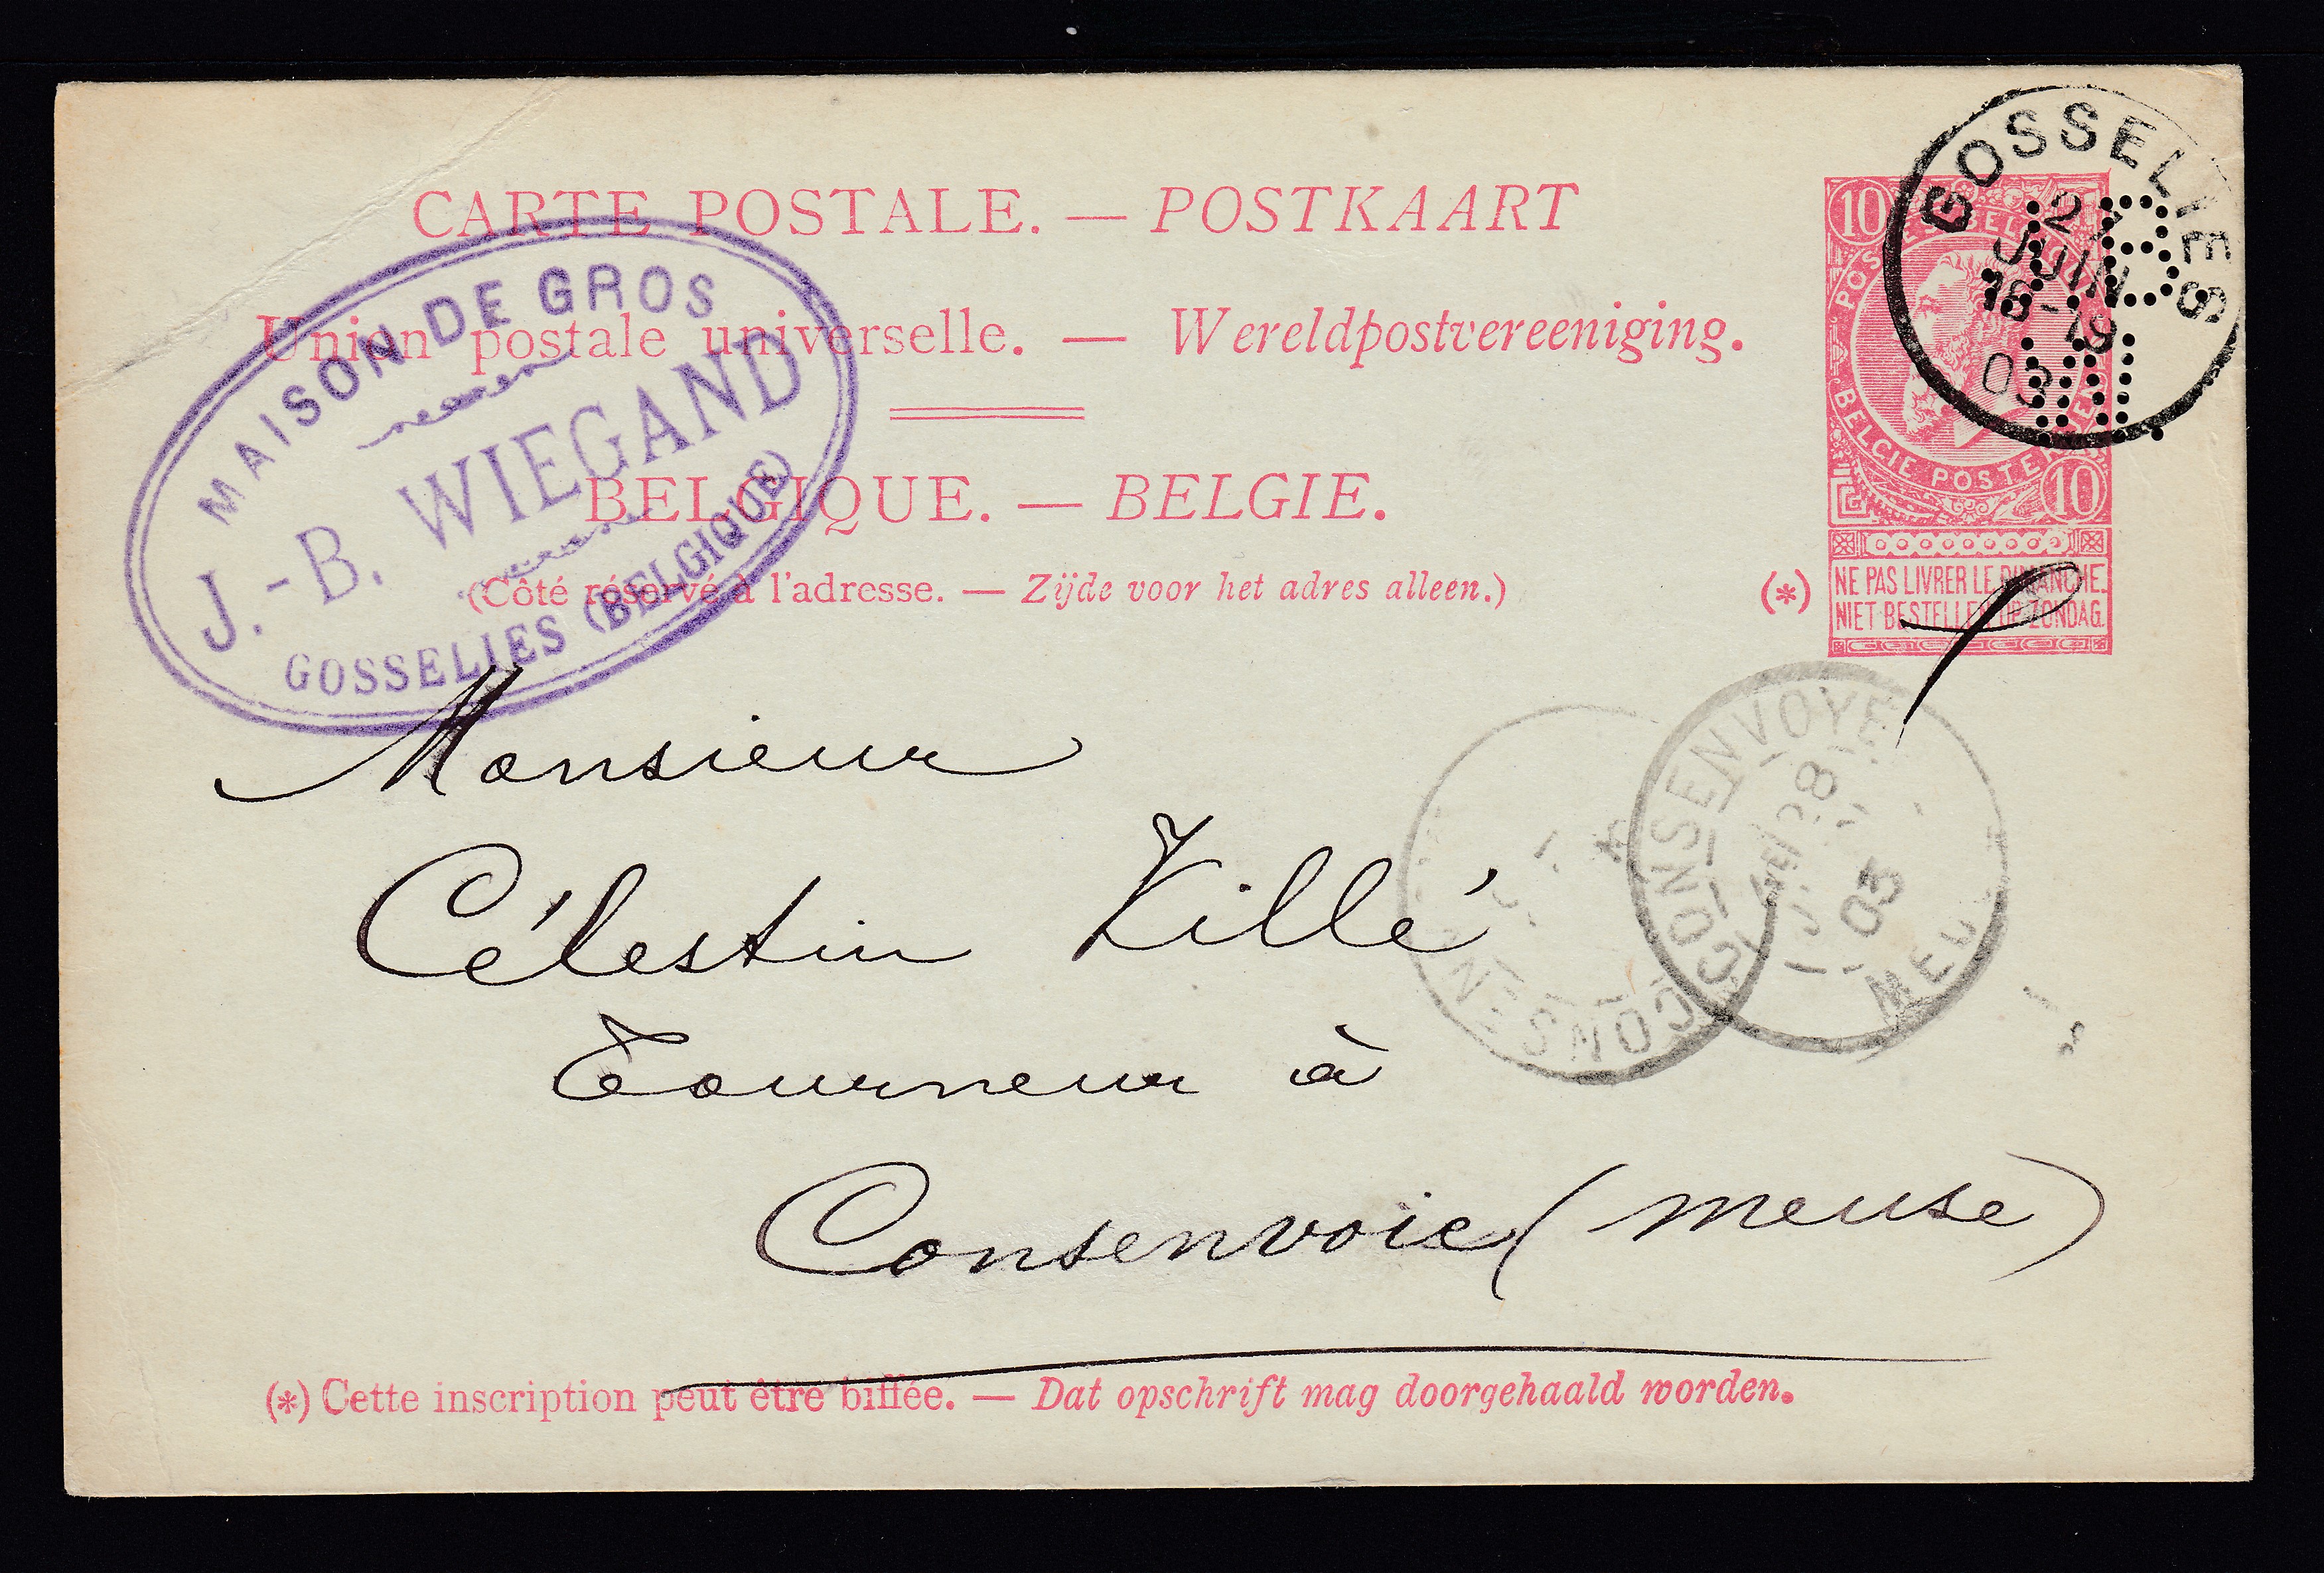 CARTE POSTALE. — POSTKAART
Union postale universelle. — Wereldpostvereeniging.
BELGIQUE. — BELGIE.
(Côté réservé à l'adresse. — Zijde voor het adres alleen.)
MAISON DE GROS
J.-B. WIEGAND
GOSSELIES (BELGIQUE)
10
BELGIE POSTERIJEN
10
(*) NE PAS LIVRER LE DIMANCHE.
NIET BESTELLEN OP ZONDAG.
GOSSELIES
27
JUIN
18-19
03
J.B.
W.
CONSENVOYE
28
03
MEUSE
CONSEN
Monsieur
Célestin Killé
Tourneur à
Consenvoie (Meuse)
(*) Cette inscription peut être biffée. — Dat opschrift mag doorgehaald worden.